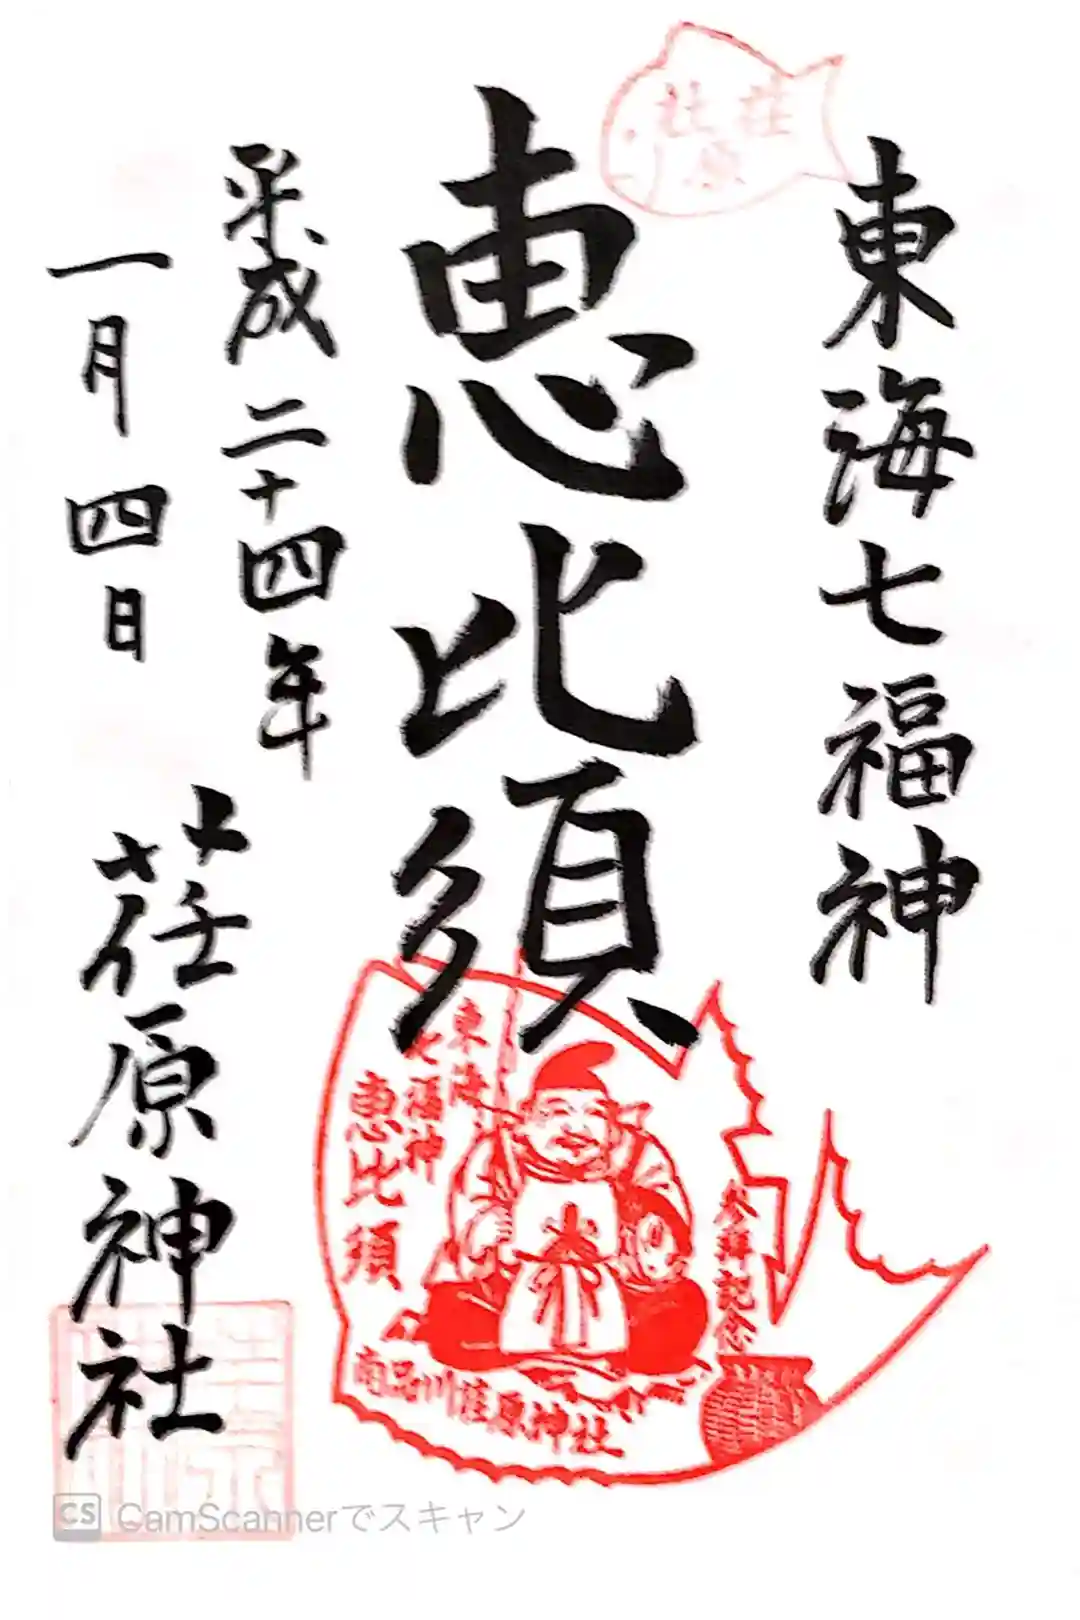 東海七福神
恵比須
平成二十四年
一月四日
荏原神社
荏原
社
東海
七福神
恵比須
参拝記念
南品川荏原神社
CS CamScannerでスキャン